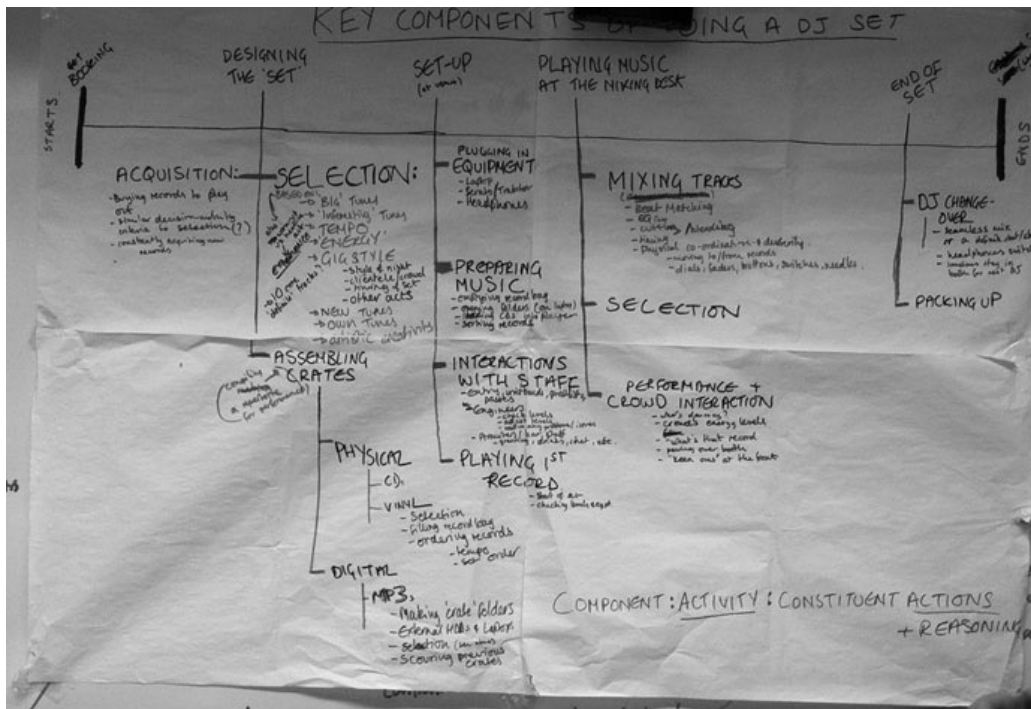 KEY COMPONENTS OF DOING A DJ SET
STARTS
GET
BOOKING
DESIGNING
THE 'SET'
SET-UP
(at venue)
PLAYING MUSIC
AT THE MIXING DESK
END OF
SET
ENDS
ACQUISITION:
- Buying records to play
out
- similar decision-making
criteria to selection (?)
- constantly acquiring new
records
SELECTION:
BASED ON:
'BIG' TUNES
'Interesting' Tunes
TEMPO
'ENERGY'
GIG STYLE
- style of night
- clientele/crowd
- timing of set
- other acts
NEW TUNES
OWN TUNES
artistic constraints
ASSEMBLING
CRATES
a repertoire
for performance)
PHYSICAL
- CDs
- VINYL
- Selection
- filling record bag
- ordering records
- tempo
- set order
DIGITAL
- MP3s
- Making 'crate' folders
- External HDDs & Laptops
- Selection
- Scouring previous
crates
PLUGGING IN
EQUIPMENT
- Laptop
- Serato/Traktor
- Headphones
PREPARING
MUSIC
- emptying record bag
- opening folders (on laptop)
- CDs into player
- sorting records
INTERACTIONS
WITH STAFF
- Engineers
- check levels
- adjust levels
- greeting, drinks, chat, etc.
PLAYING 1ST
RECORD
- Start of set
MIXING TRACKS
- Beat Matching
- EQing
- Cutting
- Timing
- Physical co-ordination & dexterity
- moving to/from records
- dials, faders, buttons, switches, needles.
SELECTION
PERFORMANCE +
CROWD INTERACTION
- who's dancing?
- crowd's energy levels
- "what's that record
- peering over booth
- "keen ones" at the front
DJ CHANGE-
OVER
- seamless mix
or a definite
- headphones
PACKING UP
COMPONENT : ACTIVITY : CONSTITUENT ACTIONS
+ REASONING